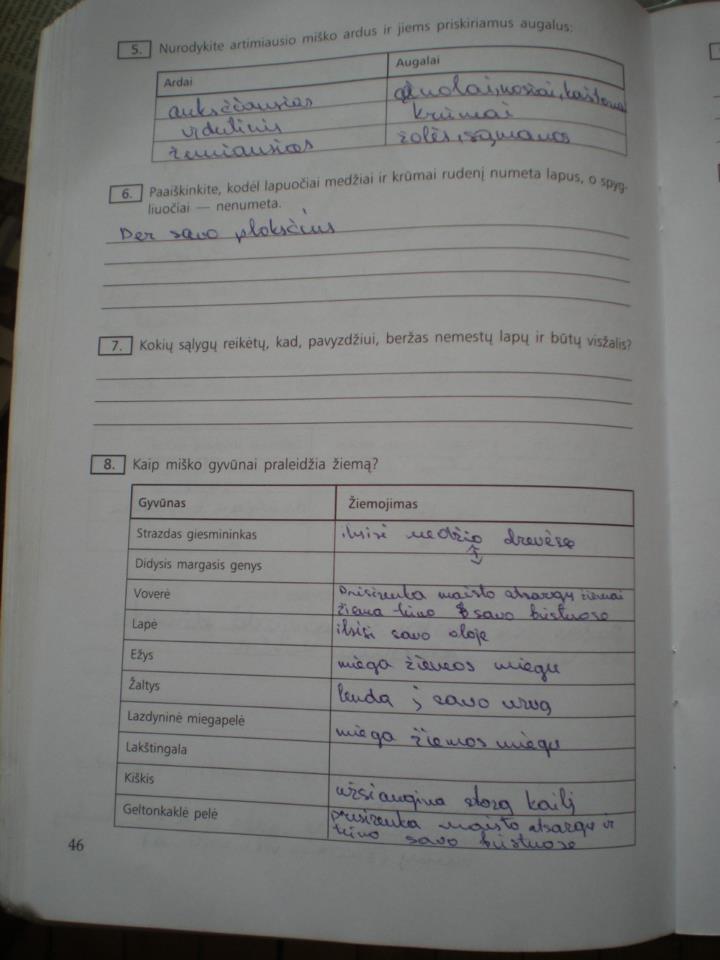 5. Nurodykite artimiausio miško ardus ir jiems priskiriamus augalus:
Ardai Augalai
aukščiausias ąžuolai, uosiai, kaštonai
vidutinis krūmai
žemiausias žolės, sąmanos
6. Paaiškinkite, kodėl lapuočiai medžiai ir krūmai rudenį numeta lapus, o spyg-
liuočiai — nenumeta.
Per savo plokščius
7. Kokių sąlygų reikėtų, kad, pavyzdžiui, beržas nemestų lapų ir būtų visžalis?
8. Kaip miško gyvūnai praleidžia žiemą?
Gyvūnas Žiemojimas
Strazdas giesmininkas ilsisi medžio drevėse
Didysis margasis genys
Voverė Prisirenka maisto atsargų žiemai
žiema tūno savo būstuose
Lapė ilsisi savo oloje
Ežys miega žiemos miegu
Žaltys lenda į savo urvą
Lazdyninė miegapelė miega žiemos miegu
Lakštingala
Kiškis užsiaugina storą kailį
Geltonkaklė pelė prisirenka maisto atsargų ir
tūno savo būstuose
46